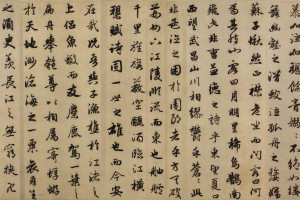 縷舞幽壑之潛蛟泣孤舟之嫠婦
蘇子愀然正襟危坐而問客曰何
為其然也客曰月明星稀烏鵲南
飛此非曹孟德之詩乎東望夏口
西望武昌山川相繆鬱乎蒼蒼此
非孟德之困於周郎者乎方其破
荊州下江陵順流而東也舳艫
千里旌旗蔽空釃酒臨江橫
槊賦詩固一世之雄也而今安
在哉況吾與子漁樵於江渚之
上侶魚蝦而友麋鹿駕一葉之
扁舟舉匏樽以相屬寄蜉蝣
於天地渺滄海之一粟哀吾生
之須臾羨長江之無窮挾飛